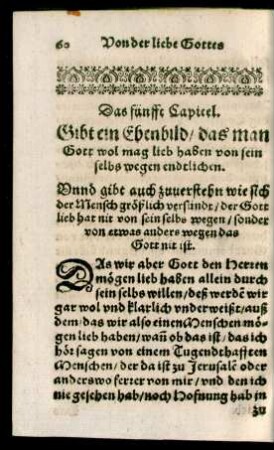 60 Von der liebe Gottes
Das fünffte Capitel.
Gibt ein Ebenbild/ das man
Gott wol mag lieb haben von sein
selbs wegen endtlichen.
Vnnd gibt auch zuuerstehn wie sich
der Mensch größlich versündt/ der Gott
lieb hat nit von sein selbs wegen/ sonder
von etwas anders wegen das
Gott nit ist.
DAs wir aber Gott den Herren
mögen lieb haben allein durch
sein selbs willen/ deß werdē wir
gar wol vnd klarlich vnderweißt/ auß
dem/ das wir also einen Menschen mö-
gen lieb haben/ wañ ob das ist/ das ich
hör sagen von einem Tugendthafften
Menschen/ der da ist zu Jerusalē oder
anderswo ferrer von mir/ vnd den ich
nie gesehen hab/ noch Hofnung hab in
zu